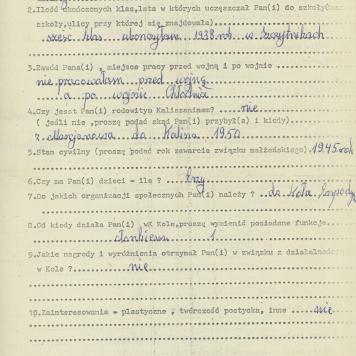 2.Ilość ukończonych klas,lata w których uczęszczał Pan(i) do szkoły
szkoły,ulicy przy której się znajdowała)
sześć klas ukończyłam 1938 rok w
3.Zawód Pana(i) , miejsce pracy przed wojną i po wojnie
nie pracowałam przed wojną
a po wojnie
4.Czy jest Pan(i) rodowitym Kaliszaninem? nie
( jeśli nie ,proszę podać skąd Pan(i) przybył(a) i kiedy)
z Marjanowa do Kalisza 1950
5.Stan cywilny (proszę podać rok zawarcia związku małżeńskiego) 1945 rok
6.Czy ma Pan(i) dzieci - ile ? trzy
7.Do jakich organizacji społecznych Pan(i) należy ? do Koła Gospodyń
8.Od kiedy działa Pan(i) wK Kole,proszę wymienić posiadane funkcje
członkiem 1
9.Jakie nagrody i wyróżnienia otrzymał Pan(i) w związku z działalnością
w Kole ? nie
10.Zainteresowania - plastyczne , twórczość poetycka, inne nie